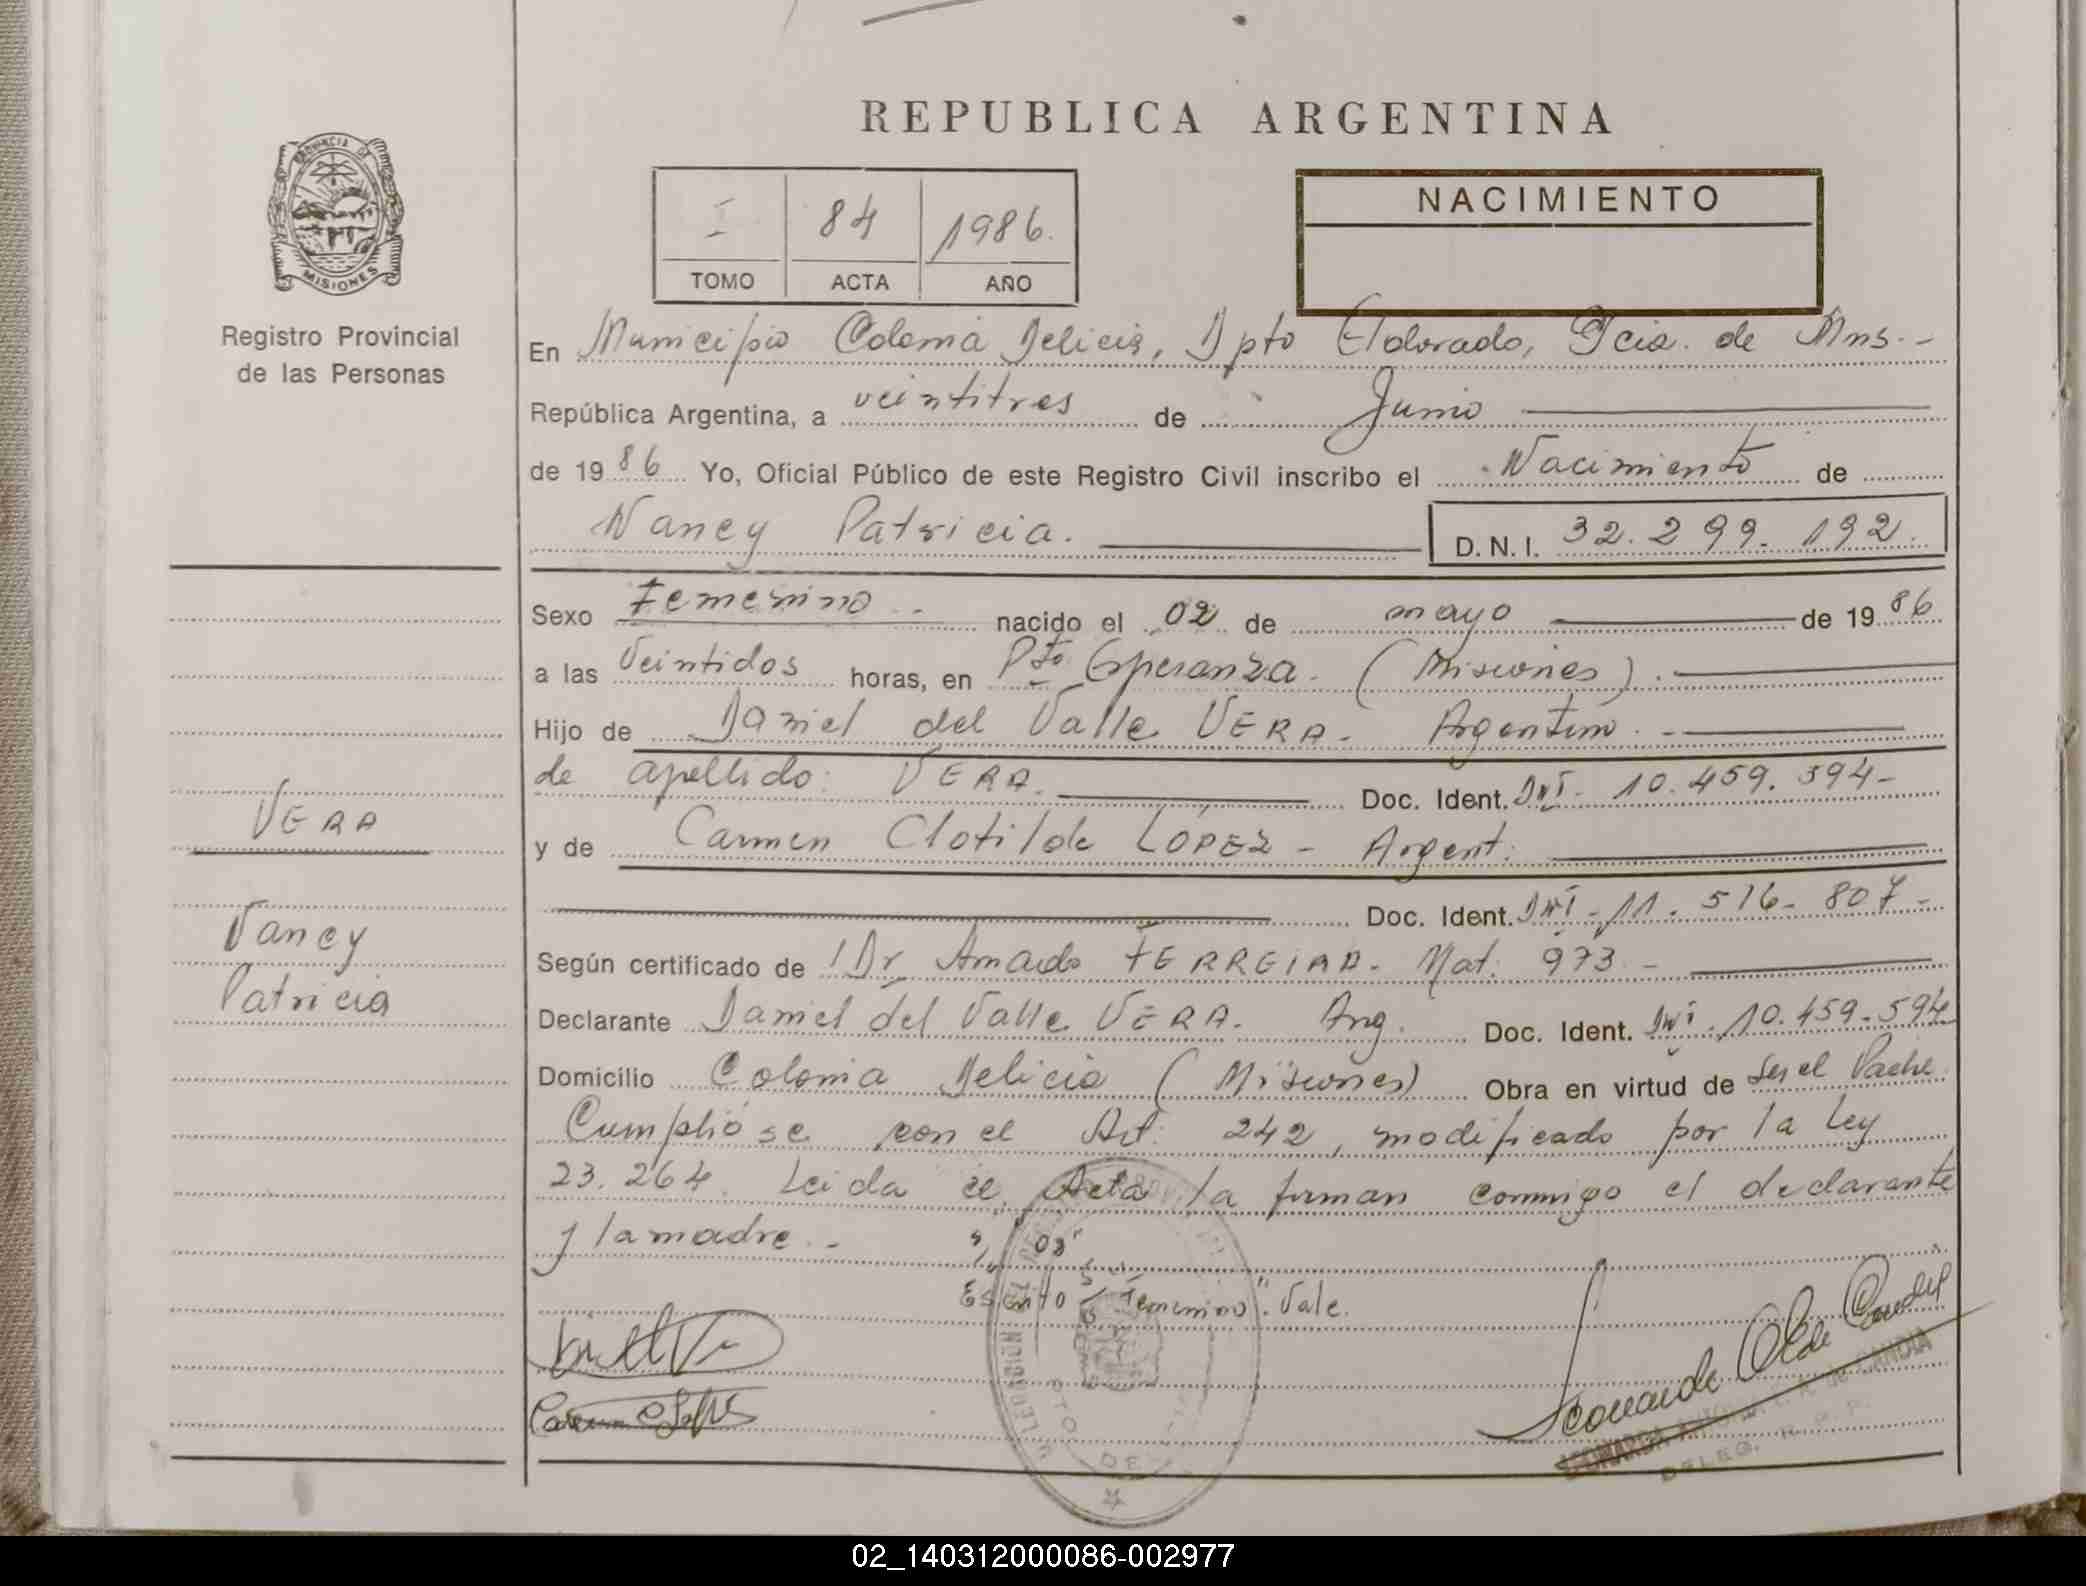 REPUBLICA ARGENTINA
PROVINCIA DE
MISIONES
Registro Provincial
de las Personas
I 84 1986.
TOMO ACTA AÑO
NACIMIENTO
En Municipio Colonia Delicia, Dpto Eldorado, Pcia. de Mns.-
República Argentina, a veintitres de Junio
de 1986 Yo, Oficial Público de este Registro Civil inscribo el Nacimiento de
Nancy Patricia. D.N.I. 32.299.192.
Sexo Femenino.- nacido el 02 de mayo de 1986
a las Veintidos horas, en Pto. Esperanza. (Misiones).
Hijo de Daniel del Valle VERA. Argentino.-
de apellido: VERA. Doc. Ident. DNI. 10.459.594-
y de Carmen Clotilde LOPEZ - Argent.
Doc. Ident. DNI-11.516-807-
Según certificado de Dr Amado FERREIRA. Mat. 973.-
Declarante Daniel del Valle VERA. Arg. Doc. Ident. DNI.10.459.594
Domicilio Colonia Delicia (Misiones) Obra en virtud de ser el Padre.
Cumplióse con el Art. 242, modificado por la Ley
23.264. Leida el Acta la firman conmigo el declarante
y la madre.-
02"
Escrito S/ "Femenino". Vale.
VERA
Nancy
Patricia
Carmen C Lopez
DELEG. R.P.P.
DPTO DE
02_140312000086-002977